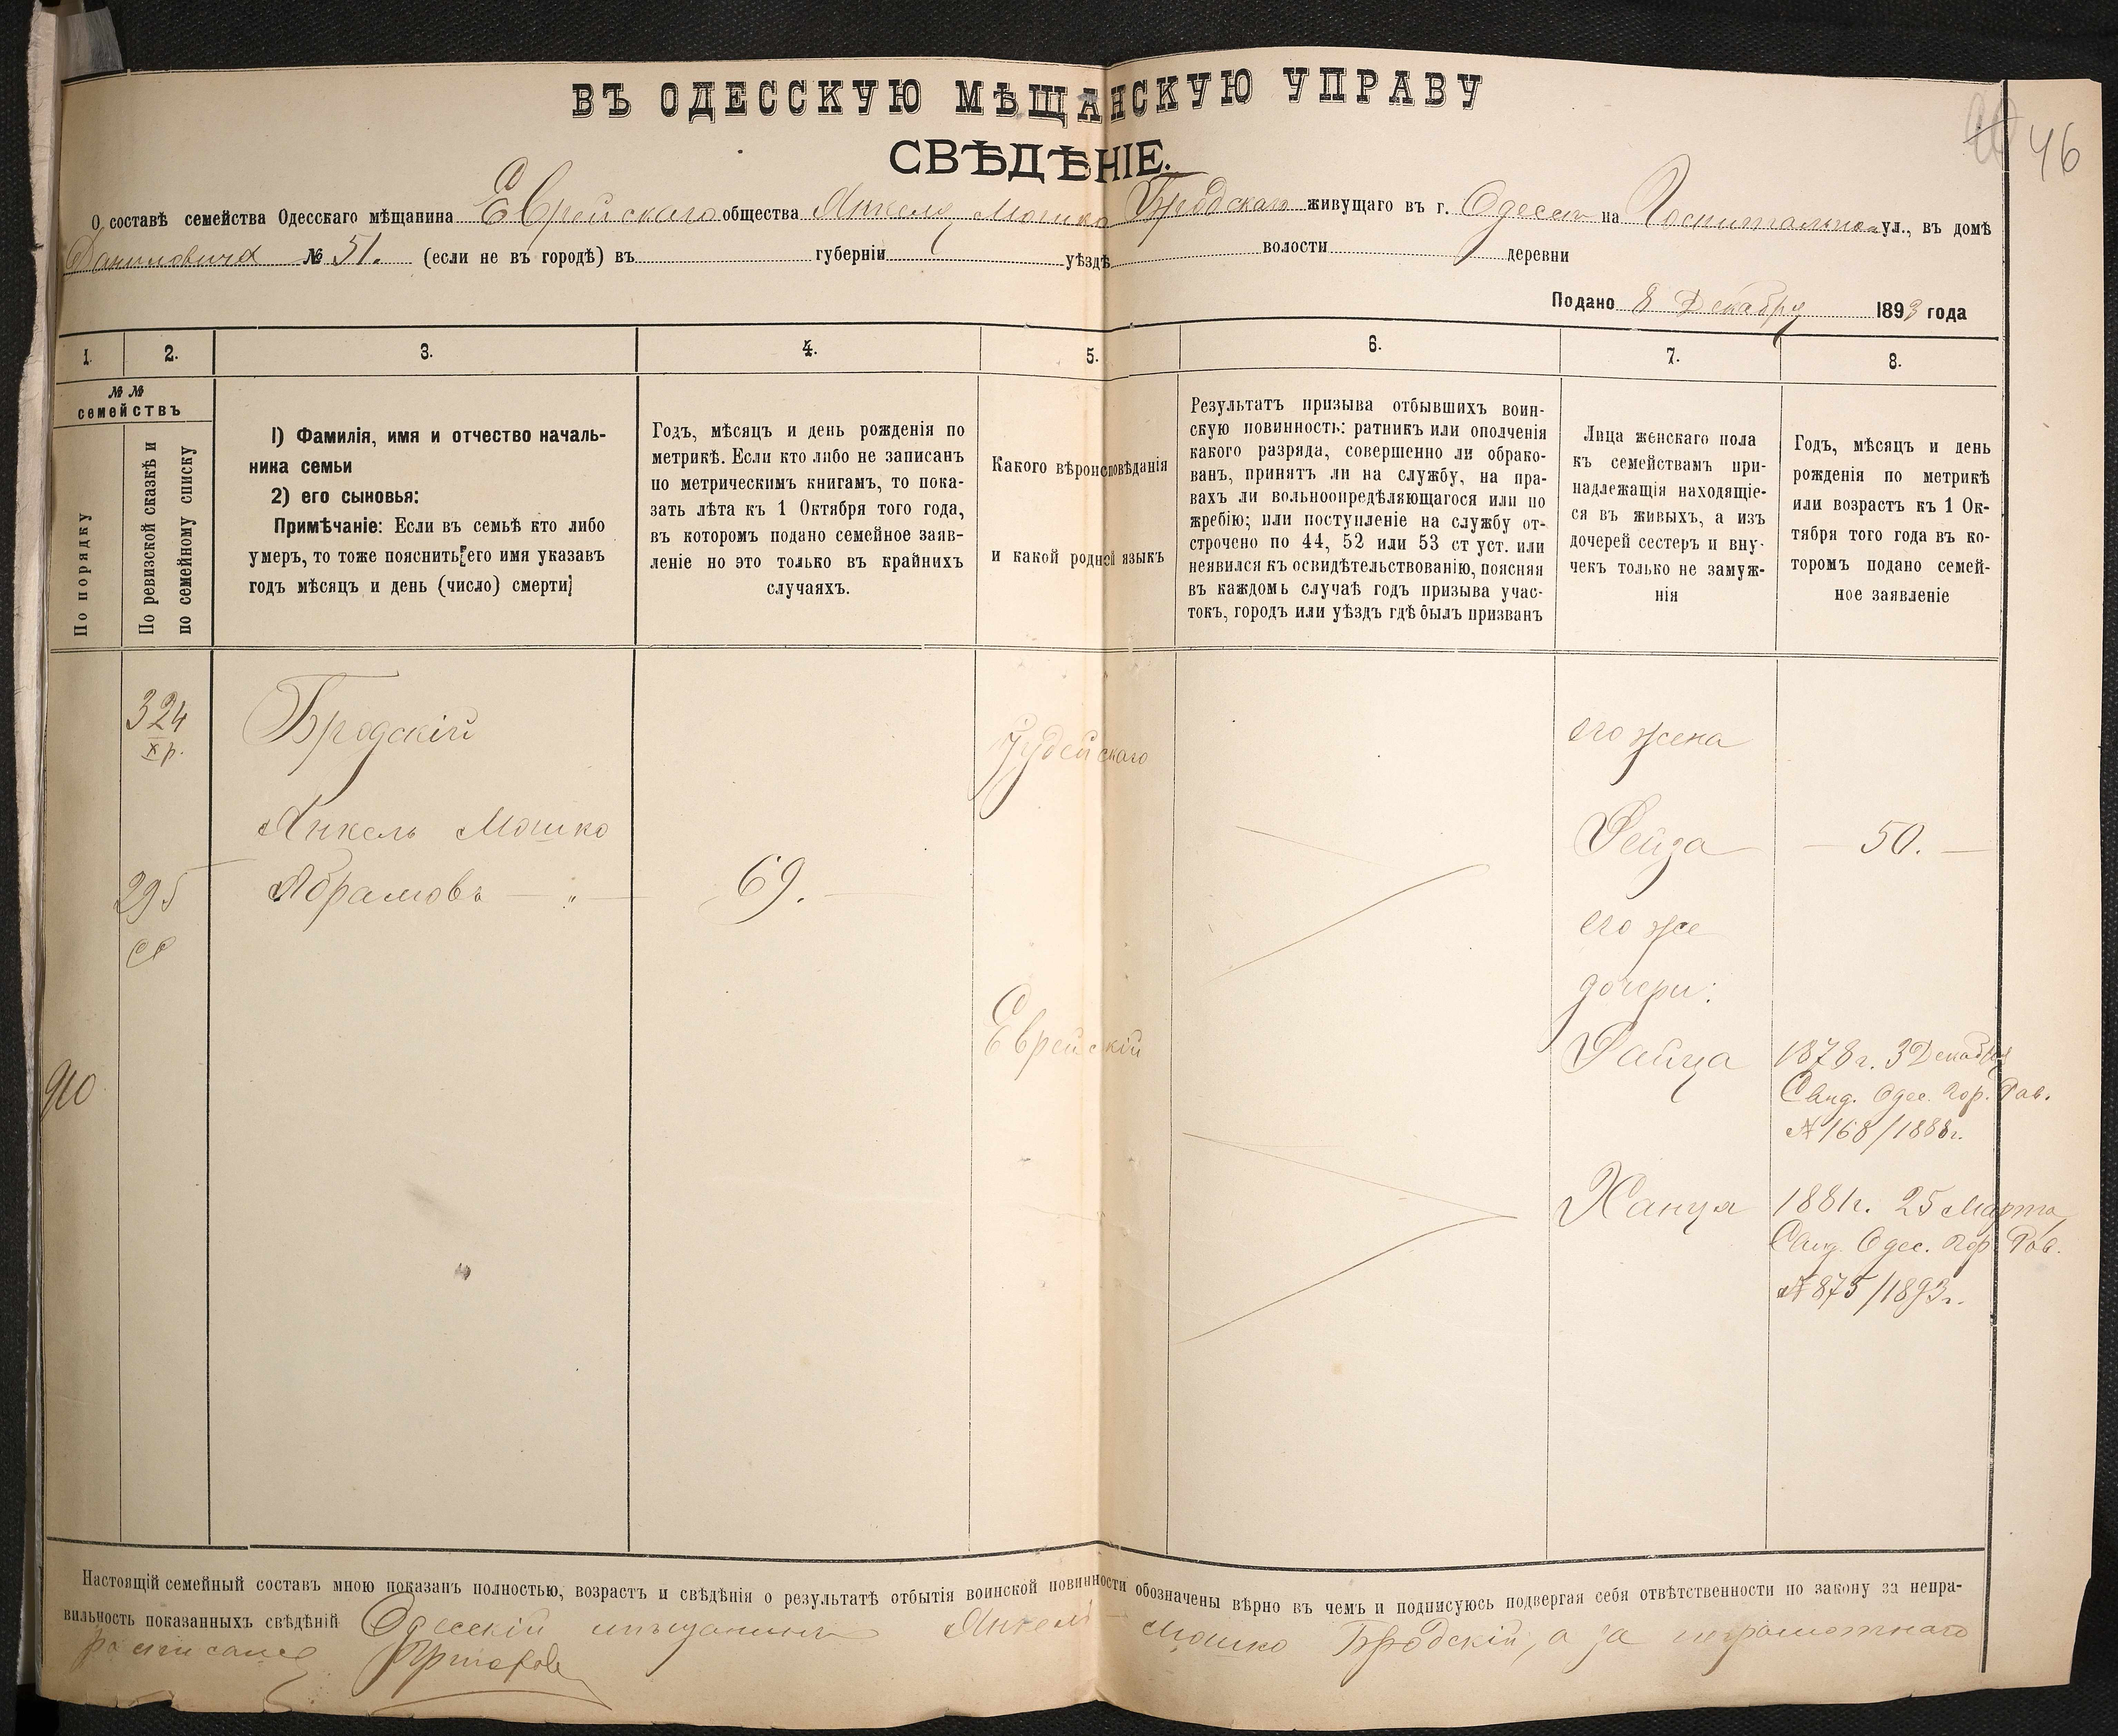 ВЪ ОДЕССКУЮ МѢЩАНСКУЮ УПРАВУ
СВѢДѢНІЕ.
46
О составѣ семейства Одесскаго мѣщанина Еврейскаго общества Янкеля Мошко Бродскаго живущаго въ г. Одессе на Госпитальной ул., въ домѣ
Даниловича № 51. (если не въ городѣ) въ губерніи уѣздѣ волости деревни
Подано 8 Декабря 1893 года
1. 2. 3. 4. 5. 6. 7. 8.
№ №
семействъ
По порядку
По ревизской сказкѣ и
по семейному списку
1) Фамилія, имя и отчество началь-
ника семьи
2) его сыновья:
Примѣчаніе: Если въ семьѣ кто либо
умеръ, то тоже пояснить, его имя указавъ
годъ мѣсяцъ и день (число) смерти,
Годъ, мѣсяцъ и день рожденія по
метрикѣ. Если кто либо не записанъ
по метрическимъ книгамъ, то пока-
зать лѣта къ 1 Октября того года,
въ которомъ подано семейное заяв-
леніе но это только въ крайнихъ
случаяхъ.
Какого вѣроисповѣданія
и какой родной языкъ
Результатъ призыва отбывшихъ воин-
скую повинность: ратникъ или ополченія
какого разряда, совершенно ли обрако-
ванъ, принятъ ли на службу, на пра-
вахъ ли вольноопредѣляющагося или по
жребію; или поступленіе на службу от-
строчено по 44, 52 или 53 ст уст. или
неявился къ освидѣтельствованію, поясняя
въ каждомъ случаѣ годъ призыва учас-
токъ, городъ или уѣздъ гдѣ былъ призванъ
Лица женскаго пола
къ семействамъ при-
надлежащія находящіе-
ся въ живыхъ, а изъ
дочерей сестеръ и вну-
чекъ только не замуж-
нія
Годъ, мѣсяцъ и день
рожденія по метрикѣ
или возрастъ къ 1 Ок-
тября того года въ ко-
торомъ подано семей-
ное заявленіе
324
X р.
295
910
Бродскій
Янкель Мошко
Абрамовъ — „ —
69.
Іудейскаго
Еврейскій
его жена
Рейза — 50. —
его же
дочери:
Райца 1878 г. 3 Декабря
Свид. Одес. Гор. Рав.
№ 168/1888 г.
Ханця 1881 г. 25 Марта
Свид. Одес. Гор. Рав.
№ 875/1893 г.
Настоящій семейный составъ мною показанъ полностью, возрастъ и свѣдѣнія о результатѣ отбытія воинской повинности обозначены вѣрно въ чемъ и подписуюсь подвергая себя отвѣтственности по закону за непра-
вильность показанныхъ свѣдѣній Одесскій мѣщанинъ Янкель-Мошко Бродскій, а за неграмотнаго